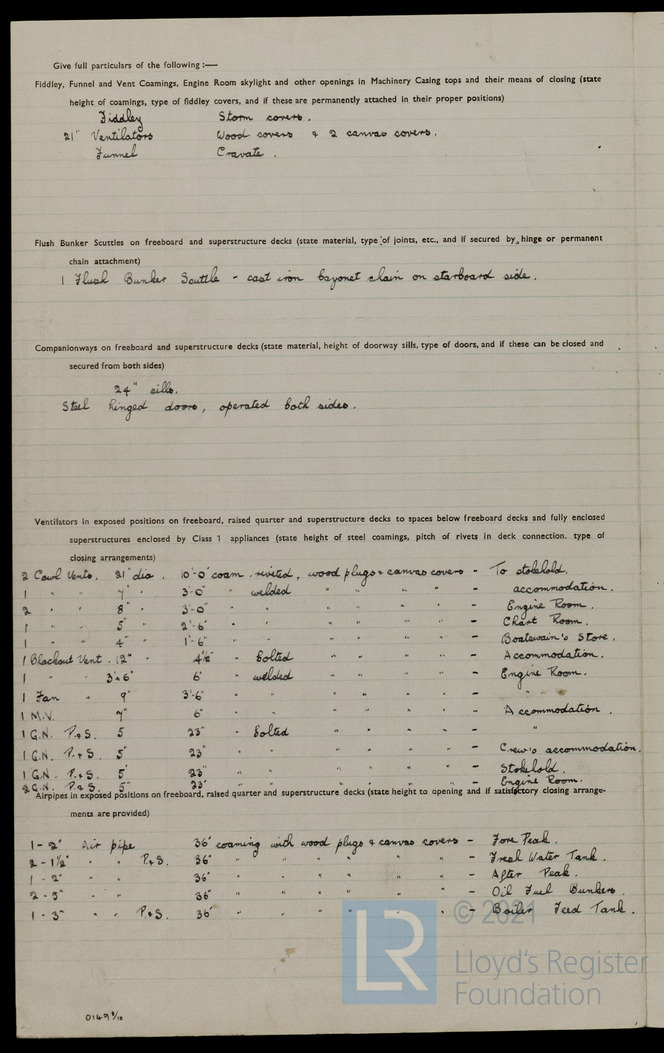 Give full particulars of the following :—
Fiddley, Funnel and Vent Coamings, Engine Room skylight and other openings in Machinery Casing tops and their means of closing (state
height of coamings, type of fiddley covers, and if these are permanently attached in their proper positions)
Fiddley Storm covers.
21" Ventilators Wood covers & 2 canvas covers.
Funnel Cravate.
Flush Bunker Scuttles on freeboard and superstructure decks (state material, type of joints, etc., and if secured by hinge or permanent
chain attachment)
1 Flush Bunker Scuttle - cast iron bayonet chain on starboard side.
Companionways on freeboard and superstructure decks (state material, height of doorway sills, type of doors, and if these can be closed and
secured from both sides)
24" sills.
Steel hinged doors, operated both sides.
Ventilators in exposed positions on freeboard, raised quarter and superstructure decks to spaces below freeboard decks and fully enclosed
superstructures enclosed by Class 1 appliances (state height of steel coamings, pitch of rivets in deck connection. type of
closing arrangements)
2 Cowl Vents. 21" dia. 10'-0" coam. riveted, wood plugs & canvas covers - To stokehold.
1 " " 7" " 3'-0" " welded " " " " - accommodation.
2 " " 8" " 3'-0" " " " " " " - Engine Room.
1 " " 5" " 2'-6" " " " " " " - Chart Room.
1 " " 4" " 1'-6" " " " " " " - Boatswain's Store.
1 Blackout Vent. 12" " 4½" " bolted " " " " - Accommodation.
1 " " 3'x6" 6" " welded " " " " - Engine Room.
1 Fan " 9" 3'-6" " " " " " " - " "
1 M.V. 7" 6" " " " " " " - Accommodation.
1 G.N. P.&S. 5 23" " bolted " " " " - "
1 G.N. P.&S. 5" 23" " " " " " " - Crew's accommodation.
1 G.N. P.&S. 5" 23" " " " " " " - Stokehold.
2 G.N. P.&S. 5" 23" " " " " " " - Engine Room.
Airpipes in exposed positions on freeboard, raised quarter and superstructure decks (state height to opening and if satisfactory closing arrange-
ments are provided)
1 - 2" Air pipe 36" coaming with wood plugs & canvas covers - Fore Peak.
2 - 1½" " " P.&S. 36" " " " " " " - Fresh Water Tank.
1 - 2" " " 36" " " " " " " - After Peak.
2 - 5" " " 36" " " " " " " - Oil Fuel Bunkers.
1 - 3" " " P.&S. 36" " " " " " " - Boiler Feed Tank.
© 2021
LR
Lloyd's Register
Foundation
0149 8/10